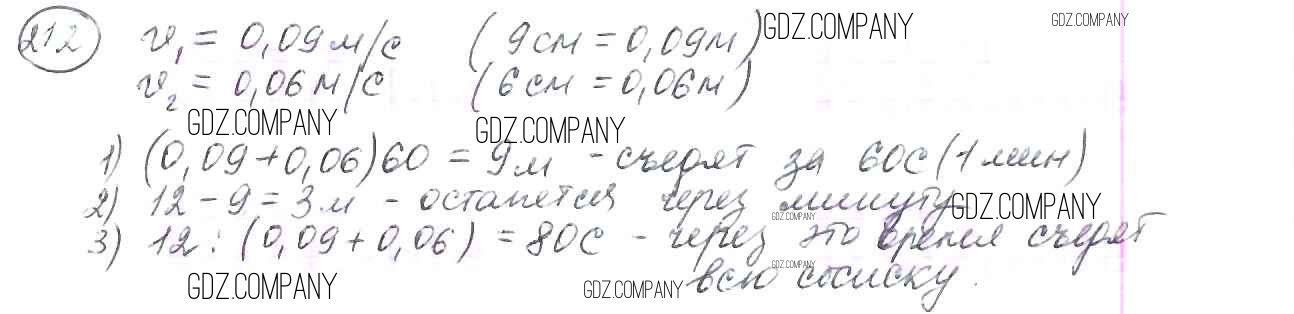 212 v₁ = 0,09 м/с (9 см = 0,09 м) GDZ.COMPANY GDZ.COMPANY
v₂ = 0,06 м/с (6 см = 0,06 м)
GDZ.COMPANY GDZ.COMPANY
1) (0,09+0,06)60 = 9 м - съедят за 60с (1 мин)
2) 12 - 9 = 3 м - останется через минуту GDZ.COMPANY GDZ.COMPANY
3) 12 : (0,09+0,06) = 80с - через это время съедят
GDZ.COMPANY GDZ.COMPANY GDZ.COMPANY
всю сосиску.